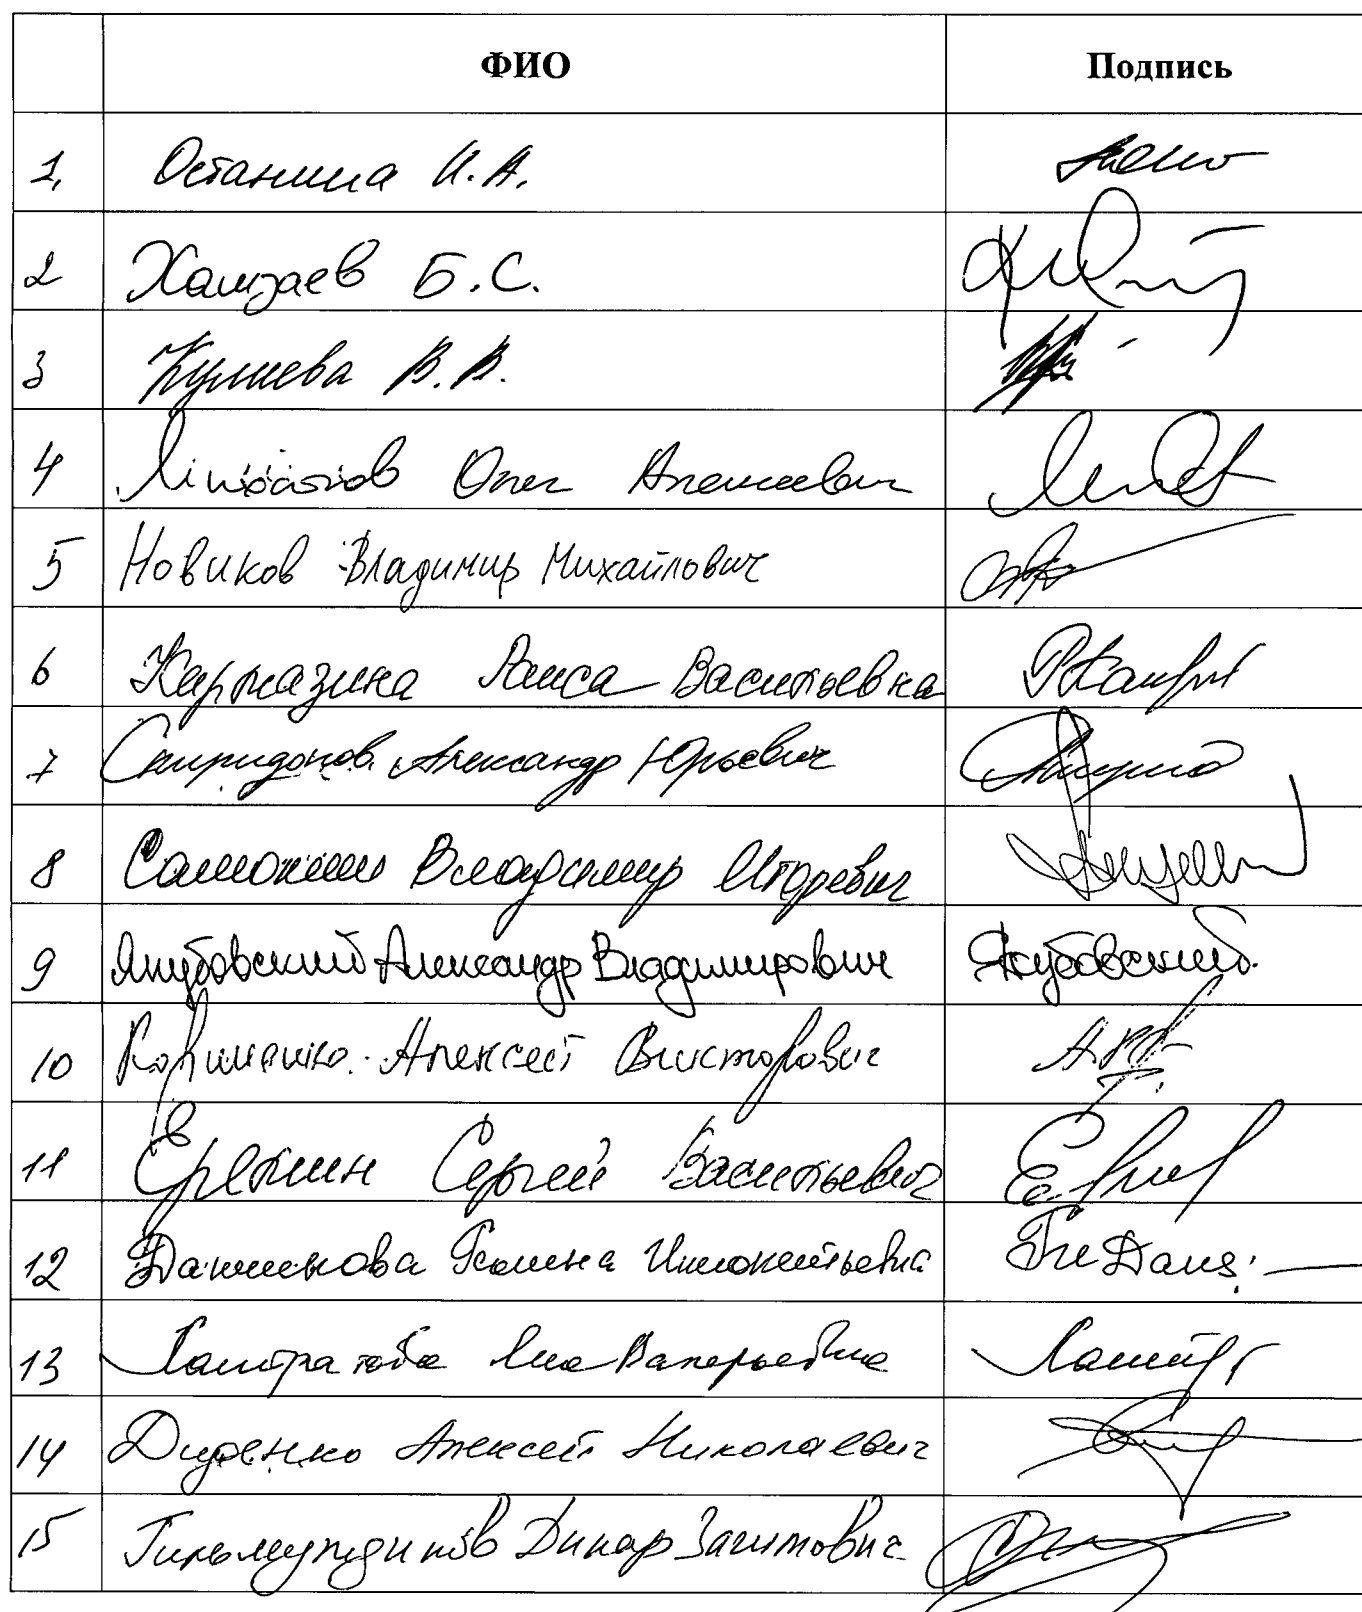 ФИО Подпись
1. Останина Н.А.
2 Хамзаев Б.С.
3 Кулиева В.В.
4 Олег Алексеевич
5 Новиков Владимир Михайлович
6 Кармазина Раиса Васильевна
7 Спиридонов Александр Юрьевич
8 Самокиш Владимир Игоревич
9 Якубовский Александр Владимирович Якубовский
10 Корниенко Алексей Викторович
11 Еремин Сергей Васильевич
12 Данчикова Галина Иннокентьевна
13 Лантратова Яна Валерьевна
14 Диденко Алексей Николаевич
15 Гильмутдинов Динар Загитович